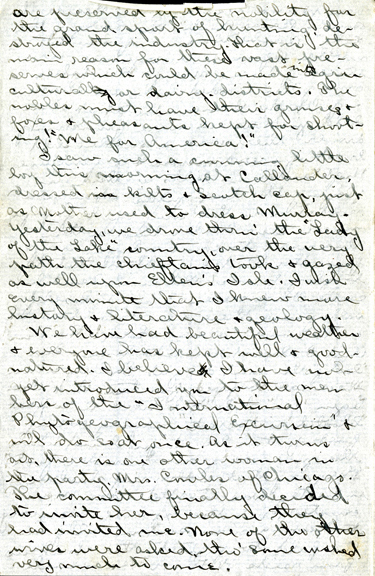 are preserved by the nobility for
the grand sport of hunting, de-
stroyed the industry. That is the
main reason for these vast pre-
serves which could be made into agri
cultural or dairy districts. The
nobles must have their grouse &
foxes & pheasants kept for shoot-
ing! "Me for America!"
I saw such a cunning little
boy this morning at Callander,
dressed in kilts & Scotch cap, just
as Mother used to dress Murray.
Yesterday, we drove thro' the "Lady
of the Lake" country, over the very
path the chieftains took & gazed
as well upon Ellen's Isle. I wish
every minute that I knew more
history & literature & geology.
We have had beautiful weather
& everyone has kept well & good-
natured. I believe I have n't
yet introduced you to the mem
bers of the "International
Phytogeographical Excursion" &
will do so at once. As it turns
out, there is one other woman in
the party, Mrs. Cowles of Chicago.
The committee finally decided
to invite her, because they
had invited me. None of the other
wives were asked, tho' some wished
very much to come.